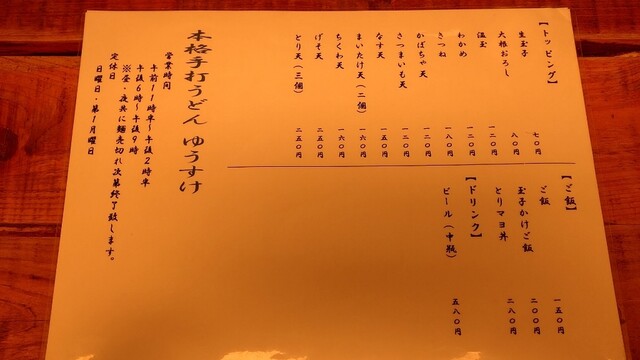 【トッピング】
生玉子 七〇円
大根おろし 八〇円
温玉 一二〇円
わかめ 一二〇円
きつね 一八〇円
かぼちゃ天 一二〇円
さつまいも天 一二〇円
なす天 一五〇円
まいたけ天（二個） 一六〇円
ちくわ天 一六〇円
げそ天 二五〇円
とり天（三個） 二五〇円
【ご飯】
ご飯 一五〇円
玉子かけご飯 二〇〇円
とりマヨ丼 二八〇円
【ドリンク】
ビール（中瓶） 五八〇円
本格手打うどん ゆうすけ
営業時間
午前１１時半～午後２時半
午後６時～午後９時
※昼・夜共に麺売切れ次第終了致します。
定休日
日曜日・第１月曜日